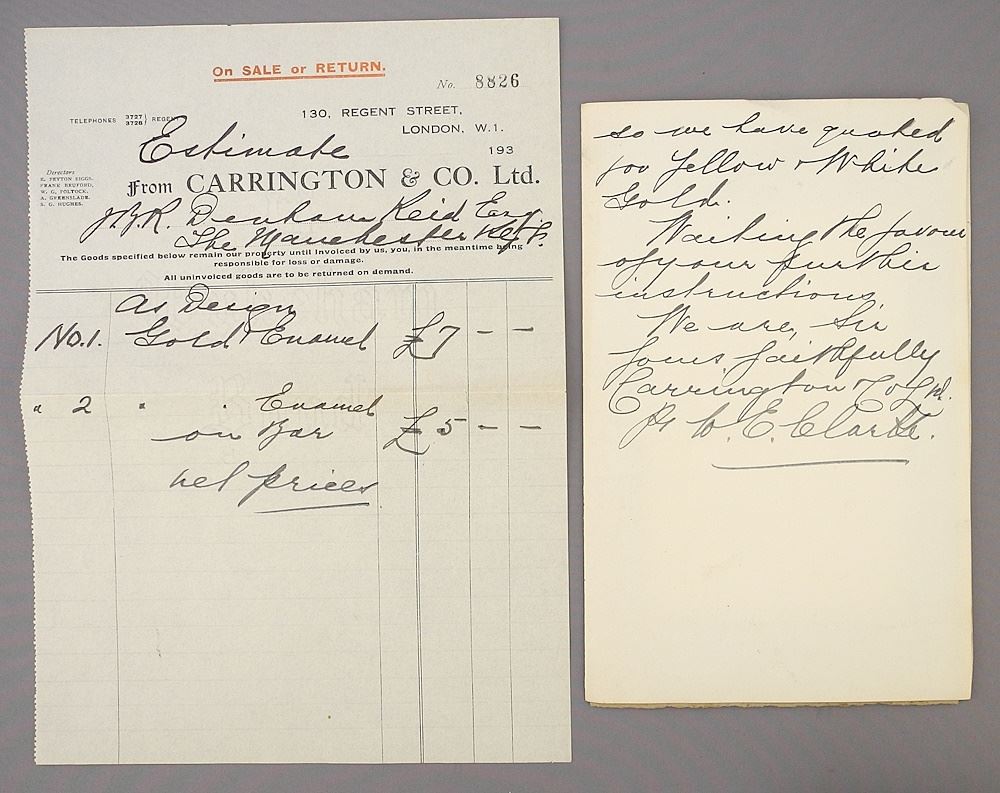 On SALE or RETURN.
No. 8826
130, REGENT STREET,
TELEPHONES 3727 3728 } REGENT
LONDON, W.1.
Estimate
193
Directors
E. PEYTON BIGGS.
FRANK BEUFORD,
W. G. FOLTOCK.
A. GREENSLADE.
S. G. HUGHES.
From CARRINGTON & CO. Ltd.
J. R. Denham Reid Esq
The Manchester Regt.
The Goods specified below remain our property until invoiced by us, you, in the meantime being
responsible for loss or damage.
All uninvoiced goods are to be returned on demand.
As Design
No. 1. Gold & Enamel £7 - -
" 2 " " Enamel
on Bar £5 - -
net prices
so we have quoted
for Yellow & White
Gold.
Waiting the favour
of your further
instructions,
We are, Sir
Yours faithfully
Carrington & Co Ld.
Pr W. E. Clarke.